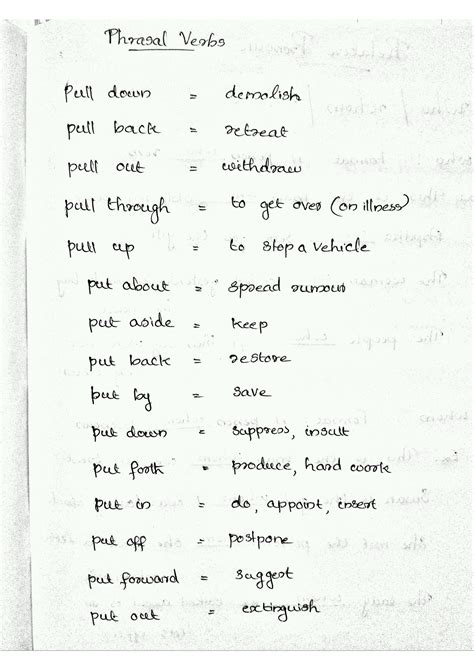 Phrasal Verbs
pull down = demolish
pull back = retreat
pull out = withdraw
pull through = to get over (on illness)
pull up = to stop a vehicle
put about = spread rumour
put aside = keep
put back = restore
put by = save
put down = suppress, insult
put forth = produce, hard work
put in = do, appoint, insert
put off = postpone
put forward = suggest
put out = extinguish